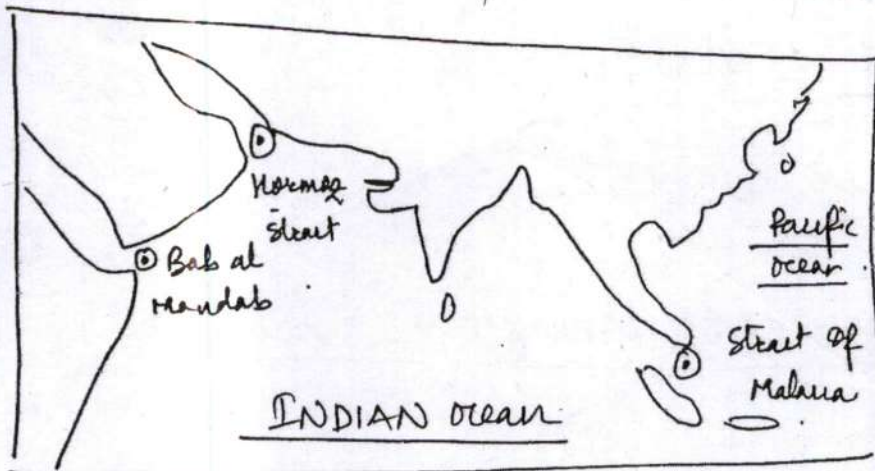 Hormoz
Strait
Bab al
Mandab
Pacific
Ocean
Strait Of
Malacca
INDIAN Ocean